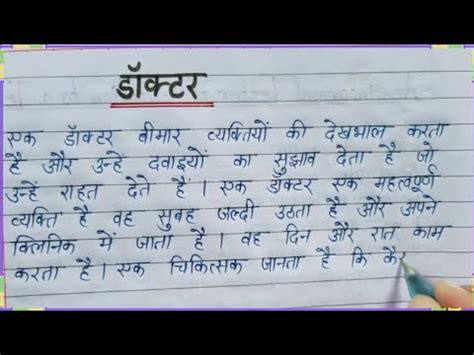 डॉक्टर
एक डॉक्टर बीमार व्यक्तियों की देखभाल करता
है और उन्हें दवाइयों का सुझाव देता है जो
उन्हें राहत देते हैं। एक डॉक्टर एक महत्वपूर्ण
व्यक्ति है वह सुबह जल्दी उठता है और अपने
क्लिनिक में जाता है। वह दिन और रात काम
करता है। एक चिकित्सक जानता है कि कै